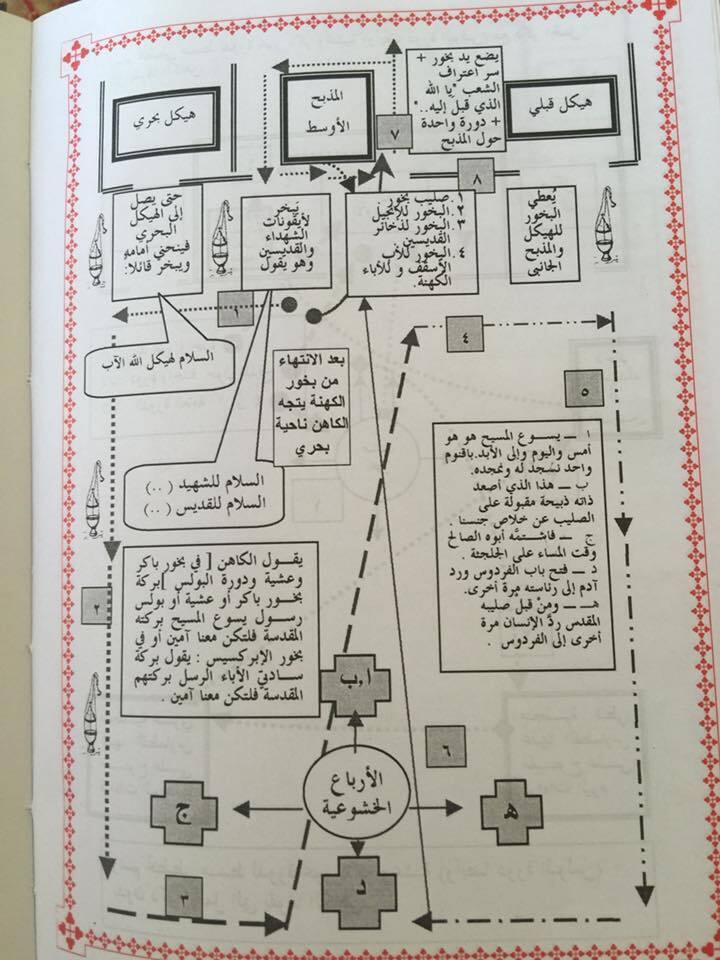 يضع يد بخور +
سر اعتراف
الشعب "يا الله
الذي قبل إليه.."
+ دورة واحدة
حول المذبح
هيكل قبلي
المذبح
الأوسط
هيكل بحري
٧
٨
يُعطي
البخور
للهيكل
والمذبح
الجانبى
١. صليب بخور
٢. البخور للإنجيل
٣. البخور لذخائر
القديسين
٤. البخور للأب
الأسقف و للأباء
الكهنة.
يَبخر
لأيقونات
الشهداء
والقديسين
وهو يقول
حتى يصل
إلى الهيكل
البحري
فينحني أمامه
ويبخر قائلا:
١
٤
السلام لهيكل الله الآب
بعد الانتهاء
من بخور
الكهنة يتجه
الكاهن ناحية
بحري
٥
السلام للشهيد ( .. )
السلام للقديس ( .. )
ا ــ يســوع المسيح هو هو
أمس واليوم وإلى الأبد. باقنوم
واحد نسجد له ونمجده.
ب ــ هذا الذي أصعد
ذاته ذبيحة مقبولة على
الصليب عن خلاص جنسنا .
ج ــ فاشتمَّه أبوه الصالح
وقت المساء على الجلجثة .
د ــ فتح باب الفردوس ورد
آدم إلى رئاسته مرة أخرى.
هــ ــ ومِنْ قبل صليبه
المقدس ردَّ الإنسان مرة
أخرى إلى الفردوس .
يقــول الكاهن [ في بخور باكر
وعشية ودورة البولس ]بركة
بخـور باكر أو عشية أو بولس
رسـول يسوع المسيح بركته
المقدسة فلتكن معنا آمين أو في
بخور الإبركسيس : يقول بركة
ســادتيَّ الأباء الرسل بركتهم
المقدسة فلتكن معنا آمين .
٢
ا،ب
٦
الأرباع
الخشوعية
ج
هـ
د
٣